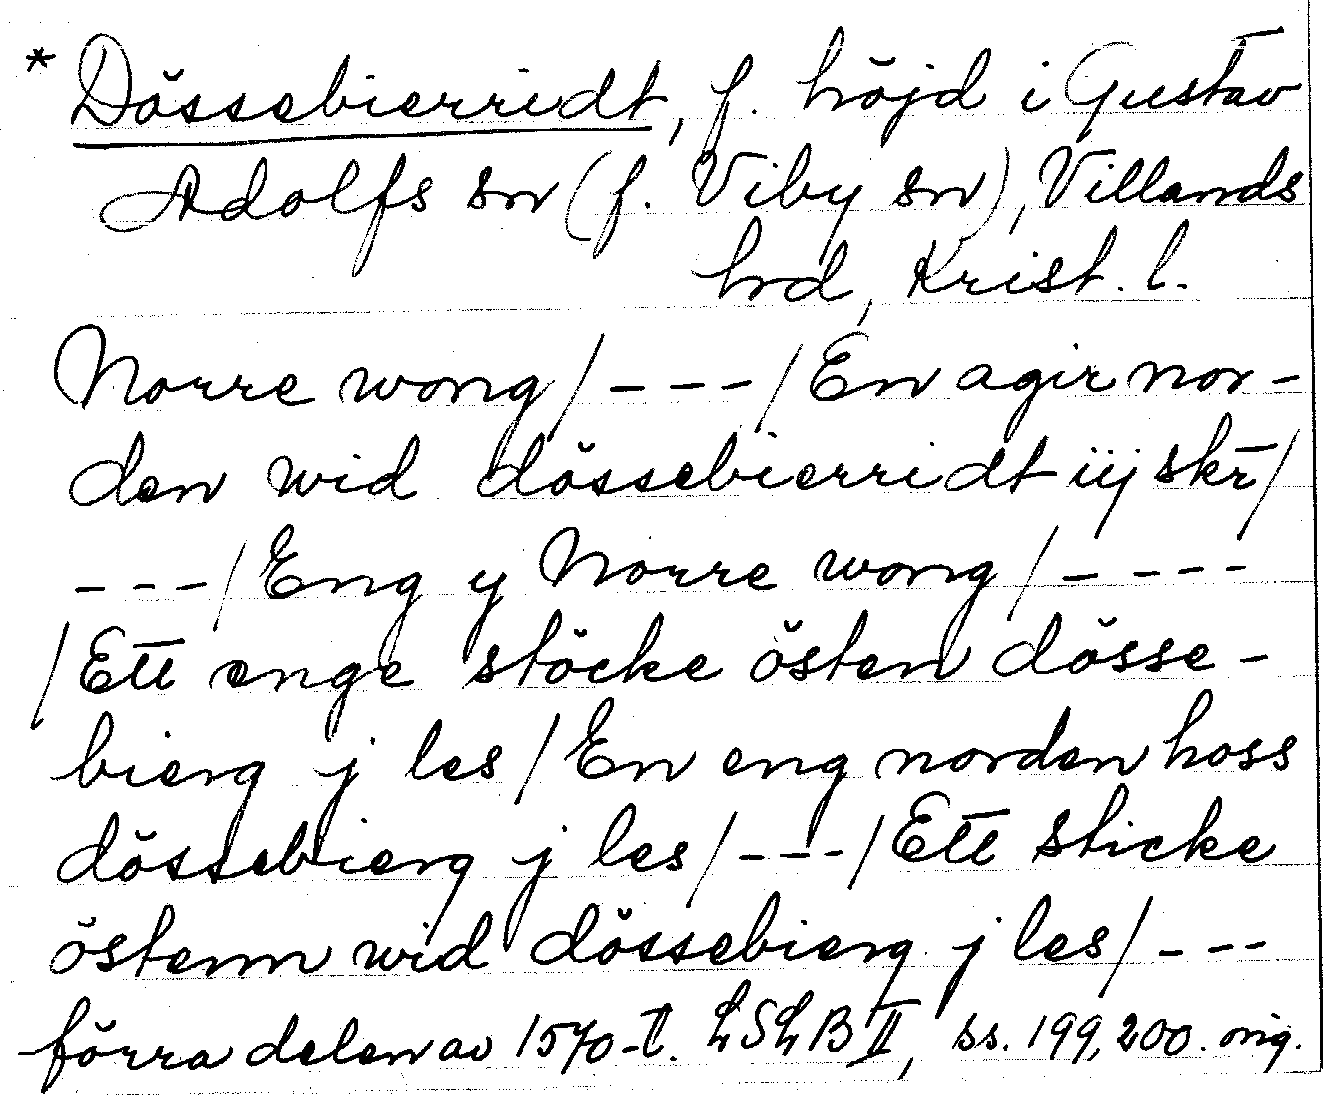 * Dössebierridt, f. höjd i Gustav
Adolfs sn (f. Viby sn), Villands
hrd, Krist. l.
Norre wong / - - - / En agir nor-
den wid dössebierridt iij skr /
- - - / Eng y Norre wong / - - - -
/ Ett enge stöcke östen dösse-
bierg j les / En eng norden hoss
dössebierg j les / - - - / Ett sticke
östenn wid dössebierg j les / - - -
förra delen av 1570-t. LSLB II, ss. 199, 200. orig.